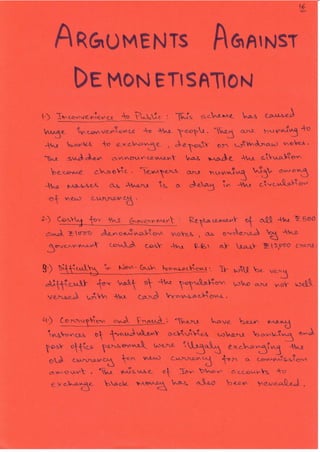 16
ARGUMENTS AGAINST
DEMONETISATION
1.) Inconvenience to Public : This scheme has caused
huge inconvenience to the people. They are running to
the banks to exchange, deposit or withdraw notes.
The sudden announcement has made the situation
become chaotic. Tempers are running high among
the masses as there is a delay in the circulation
of new currency.
2.) Costly for the Government : Replacement of all the ₹500
and ₹1000 denomination notes, as ordered by the
government could cost the RBI at least ₹12,000 crore
3.) Difficulty in Non-Cash transactions: It will be very
difficult for half of the population who are not well
versed with the card transactions.
4.) Corruption and Fraud : There have been many
instances of fraudulent activities where banking and
post office personnel were illegaly exchanging the
old currency for new currency for a commission
amount. The misuse of Jan Dhan accounts to
exchange black money has also been revealed.